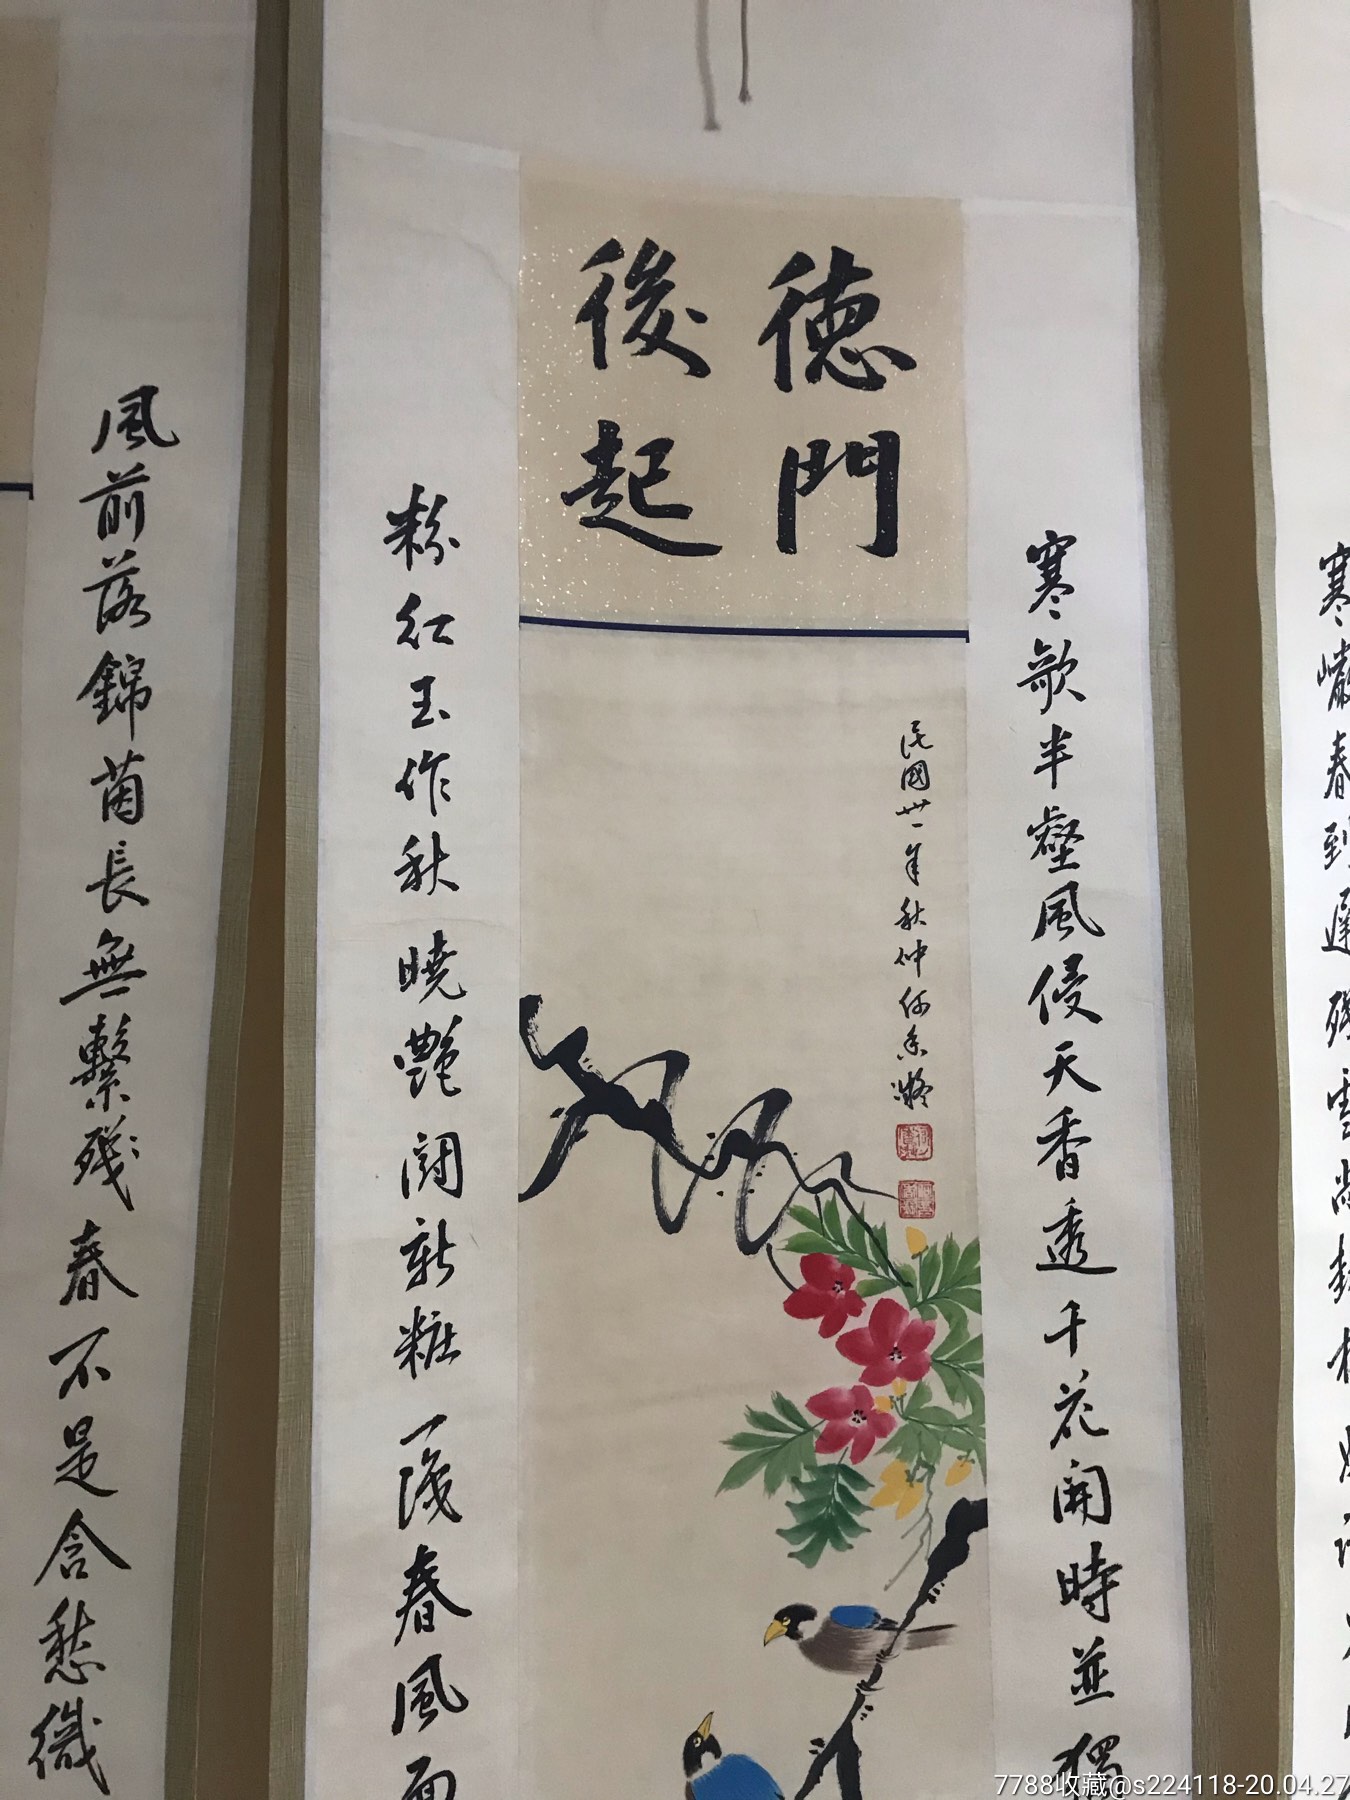 德門
後起
民國卅一年秋仲何香凝
寒歌半壑風侵天香透千花開時並獨
粉紅玉作秋曉艷鬪新粧一陣春風面
風前落錦茵長無繫殘春不是含愁織
寒巖春到遲殘雲尚
7788收藏@s224118-20.04.27